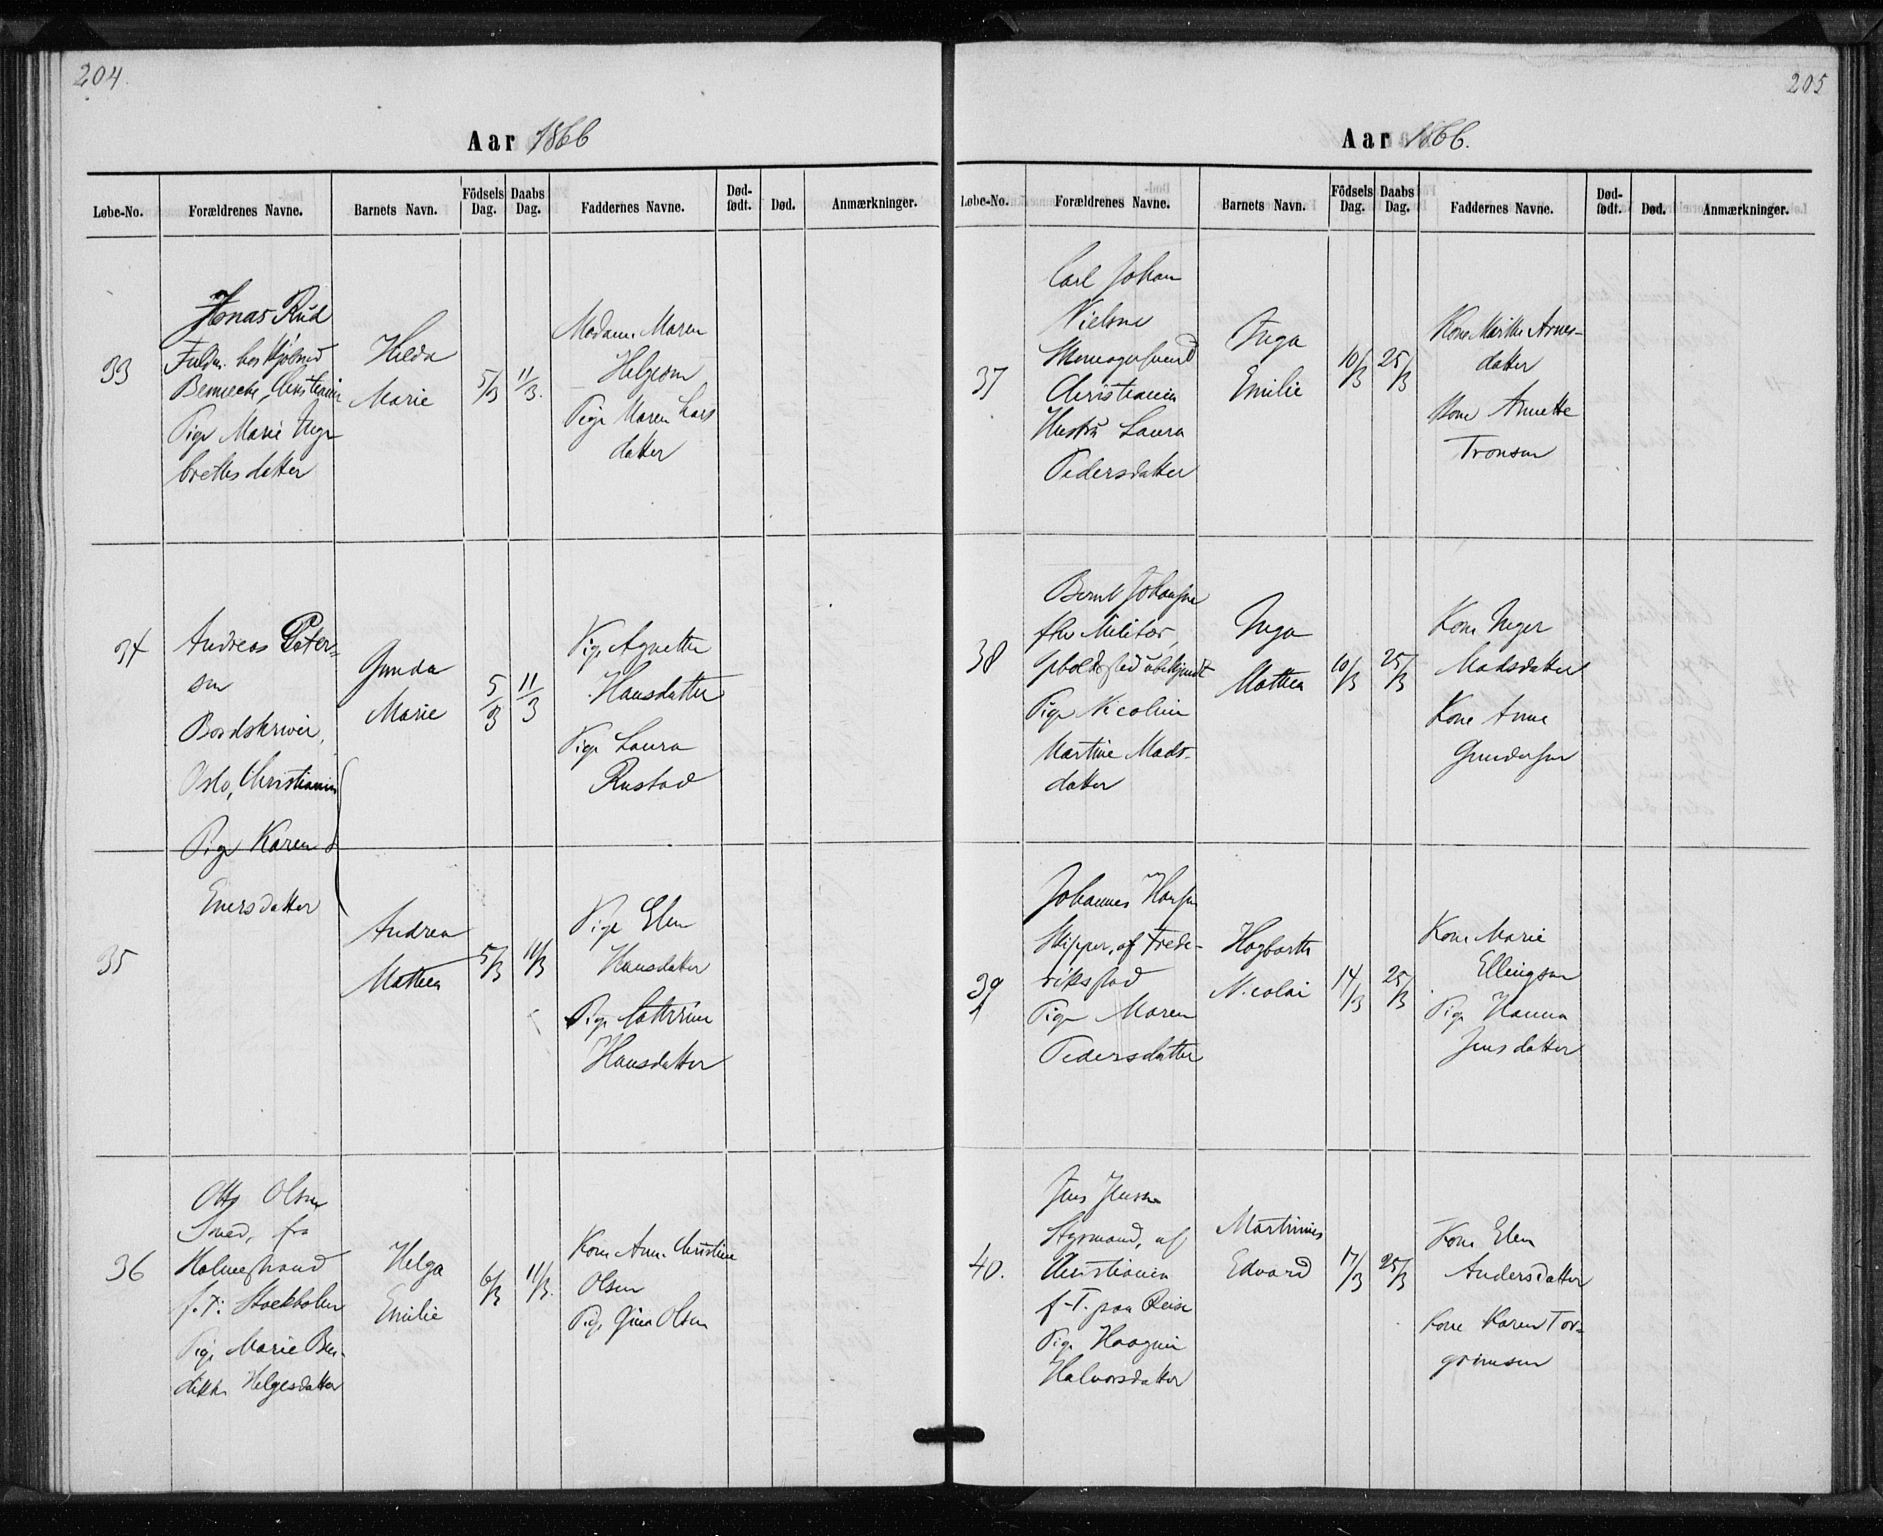 204.
Aar 1866
Løbe-No. Forældrenes Navne. Barnets Navn. Födsels Dag. Daabs Dag. Faddernes Navne. Død-födt. Død. Anmærkninger.
33
Jonas Rud
Christiania
Pige Marie Inge
brettes datter
Hilda
Marie
5/3
11/3.
Madam Maren
Helgesen
Pige Maren Lars
datter
34
Andreas Peter-
sen
Bordskriver,
Oslo, Christiania
Pige Karen
Eversdatter
Gunda
Marie
5/3
11/3
Pige Agnethe
Hansdatter
Pige Laura
Rustad
35
Andrea
Mathea
5/3
11/3
Pige Elen
Hansdatter
Pige Cathrine
Hansdatter
36
Otto Olsen
Smed, fra
Holmestrand
f. T. Stockholm
Pige Marie Ben-
dikte Helgesdatter
Helga
Emilie
6/3
11/3.
Kone Anne Christine
Olsen
Pige Gina Olsen
205
Aar 1866.
Løbe-No. Forældrenes Navne. Barnets Navn. Födsels Dag. Daabs Dag. Faddernes Navne. Død-födt. Død. Anmærkninger.
37
Carl Johan
Nielsen
Skomagersvend
Christiania
Hustru Laura
Pedersdatter
Inga
Emilie
10/3
25/3
Kone Marthe Arnes-
datter
Kone Annette
Tronsen
38
Bernt Johansen
Militær,
Opholdssted ubekjendt
Pige Nicoline
Martine Mads-
datter
Inga
Mathea
10/3
25/3
Kone Inger
Madsdatter
Kone Anne
Gundersen
39
Johannes Hansen
Skipper, af Frede-
rikstad
Pige Maren
Pedersdatter
Hagbarth
Nicolai
14/3
25/3
Kone Marie
Ellingsen
Pige Hanna
Jensdatter
40.
Jens Jensen
Styrmand, af
Christiania
f. T. paa Reise
Pige Haagine
Halvorsdatter
Martinius
Edvard
17/3
25/3
Kone Elen
Andersdatter
Kone Karen Tor-
grimsen